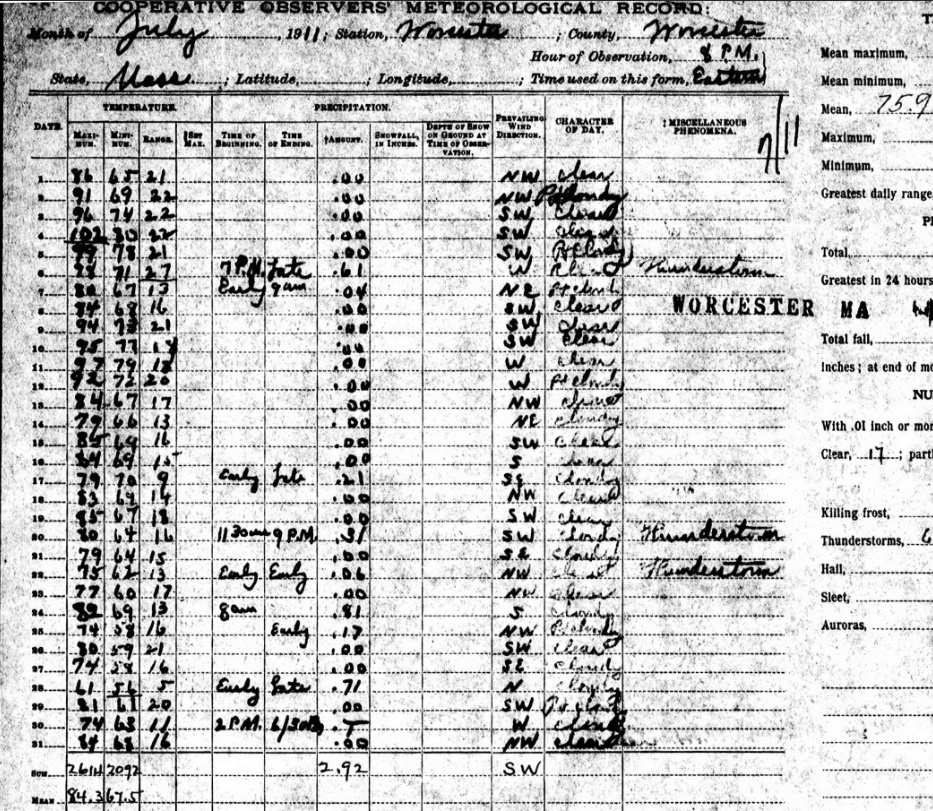 COOPERATIVE OBSERVERS' METEOROLOGICAL RECORD:
Month of July, 1911; Station, Worcester; County, Worcester
Hour of Observation, 8 P.M.
State, Mass; Latitude, ; Longitude, ; Time used on this form, Eastern
TEMPERATURE. PRECIPITATION.
DATE. MAXIMUM. MINIMUM. RANGE. SET MAX. TIME OF BEGINNING. TIME OF ENDING. AMOUNT. SNOWFALL, IN INCHES. DEPTH OF SNOW ON GROUND AT TIME OF OBSERVATION. PREVAILING WIND DIRECTION. CHARACTER OF DAY. MISCELLANEOUS PHENOMENA.
7/11
1 86 65 21 .00 NW clear
2 91 69 22 .00 NW Pt cloudy
3 96 74 22 .00 SW Clear
4 102 80 22 .00 SW
5 99 78 21 .00 SW Pt Cloudy
6 98 71 27 7 P.M. Late .61 W Thunderstorm
7 80 67 13 Early 9 am .04 NE Pt cloudy
8 84 68 16 .00 SW Clear
9 94 73 21 .00 SW Clear
10 95 77 18 SW Clear
11 97 79 18 .00 W Clear
12 92 72 20 .00 W Pt cloudy
13 84 67 17 .00 NW Clear
14 79 66 13 .00 NE Cloudy
15 85 69 16 .00 SW Clear
16 84 69 15 .00 S Clear
17 79 70 9 Early Late .21 SE Cloudy
18 83 69 14 .00 NW Clear
19 85 67 18 .00 SW Clear
20 80 64 16 11 30 am 9 P.M. .31 SW Cloudy Thunderstorm
21 79 64 15 .00 SE Cloudy
22 75 62 13 Early Early .06 NW Clear Thunderstorm
23 77 60 17 .00 NW Clear
24 82 69 13 8 am .81 S Cloudy
25 74 58 16 Early .17 NW Pt cloudy
26 80 59 21 .00 SW Clear
27 74 58 16 .00 SE Cloudy
28 61 56 5 Early Late .71 N Cloudy
29 81 61 20 .00 SW Pt cloudy
30 74 63 11 2 P.M. 6/30 P.M. T W Clear
31 84 68 16 .00 NW Clear
SUM 2614 2092 2.92 SW
MEAN 84.3 67.5
WORCESTER MA
Mean maximum,
Mean minimum,
Mean, 75.9
Maximum,
Minimum,
Greatest daily range,
Total,
Greatest in 24 hours
Total fall,
inches; at end of
NU
With .01 inch or
Clear, 17; part
Killing frost,
Thunderstorms, 6
Hail,
Sleet,
Auroras,